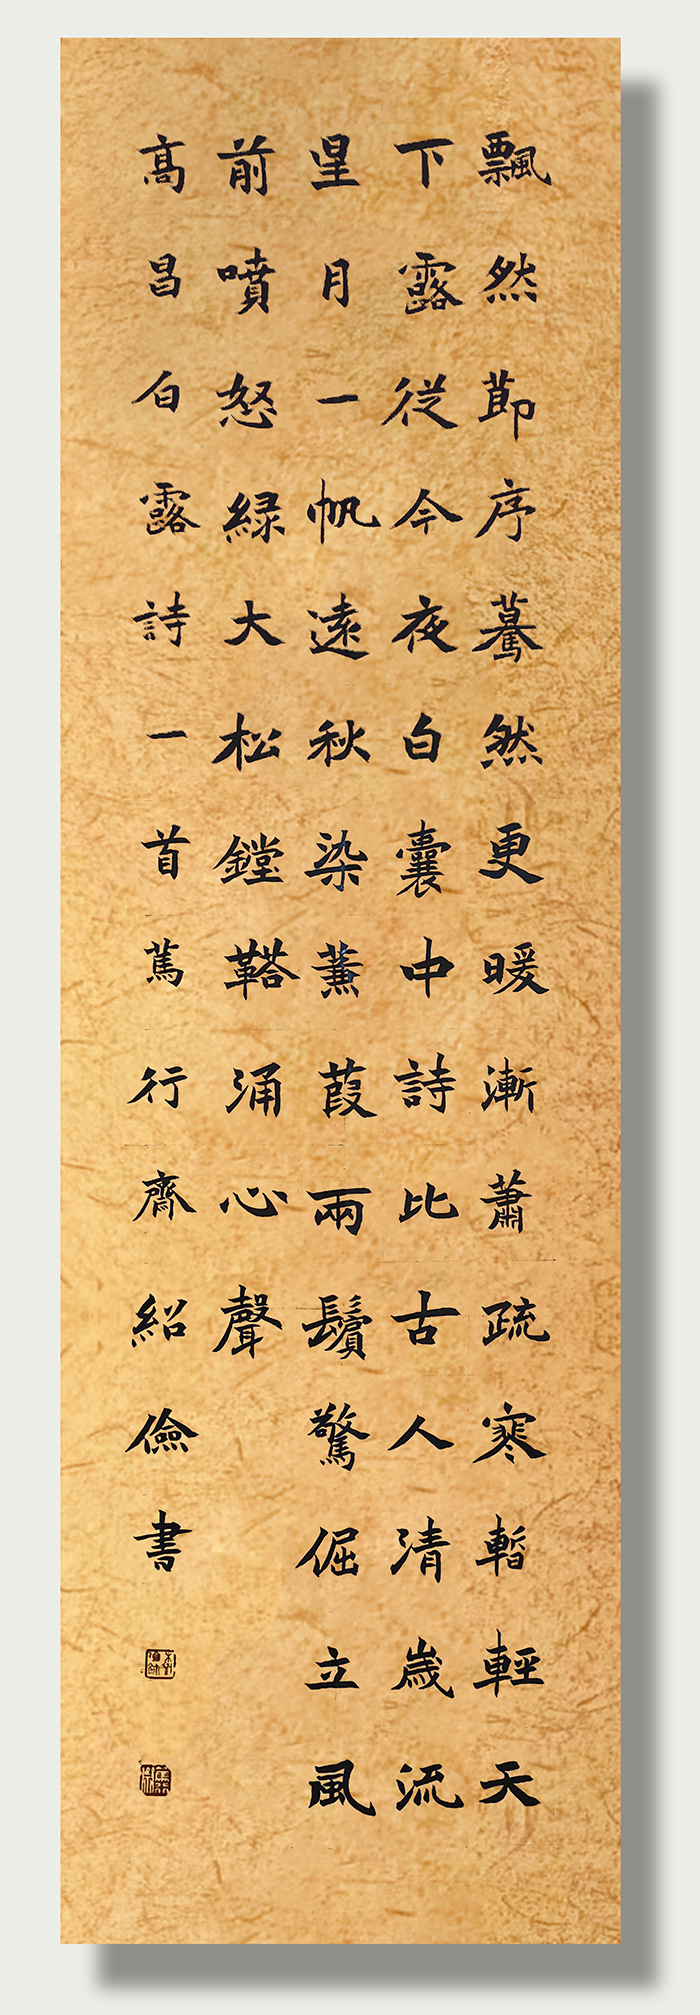 飄然莭序驀然更暖漸蕭疏寒暫輕天
下露從今夜白囊中詩比古人清歲流
星月一帆遠秋染蒹葭兩鬢驚倔立風
前噴怒綠大松鏜鞳涌心聲
髙昌白露詩一首篤行齊紹儉書